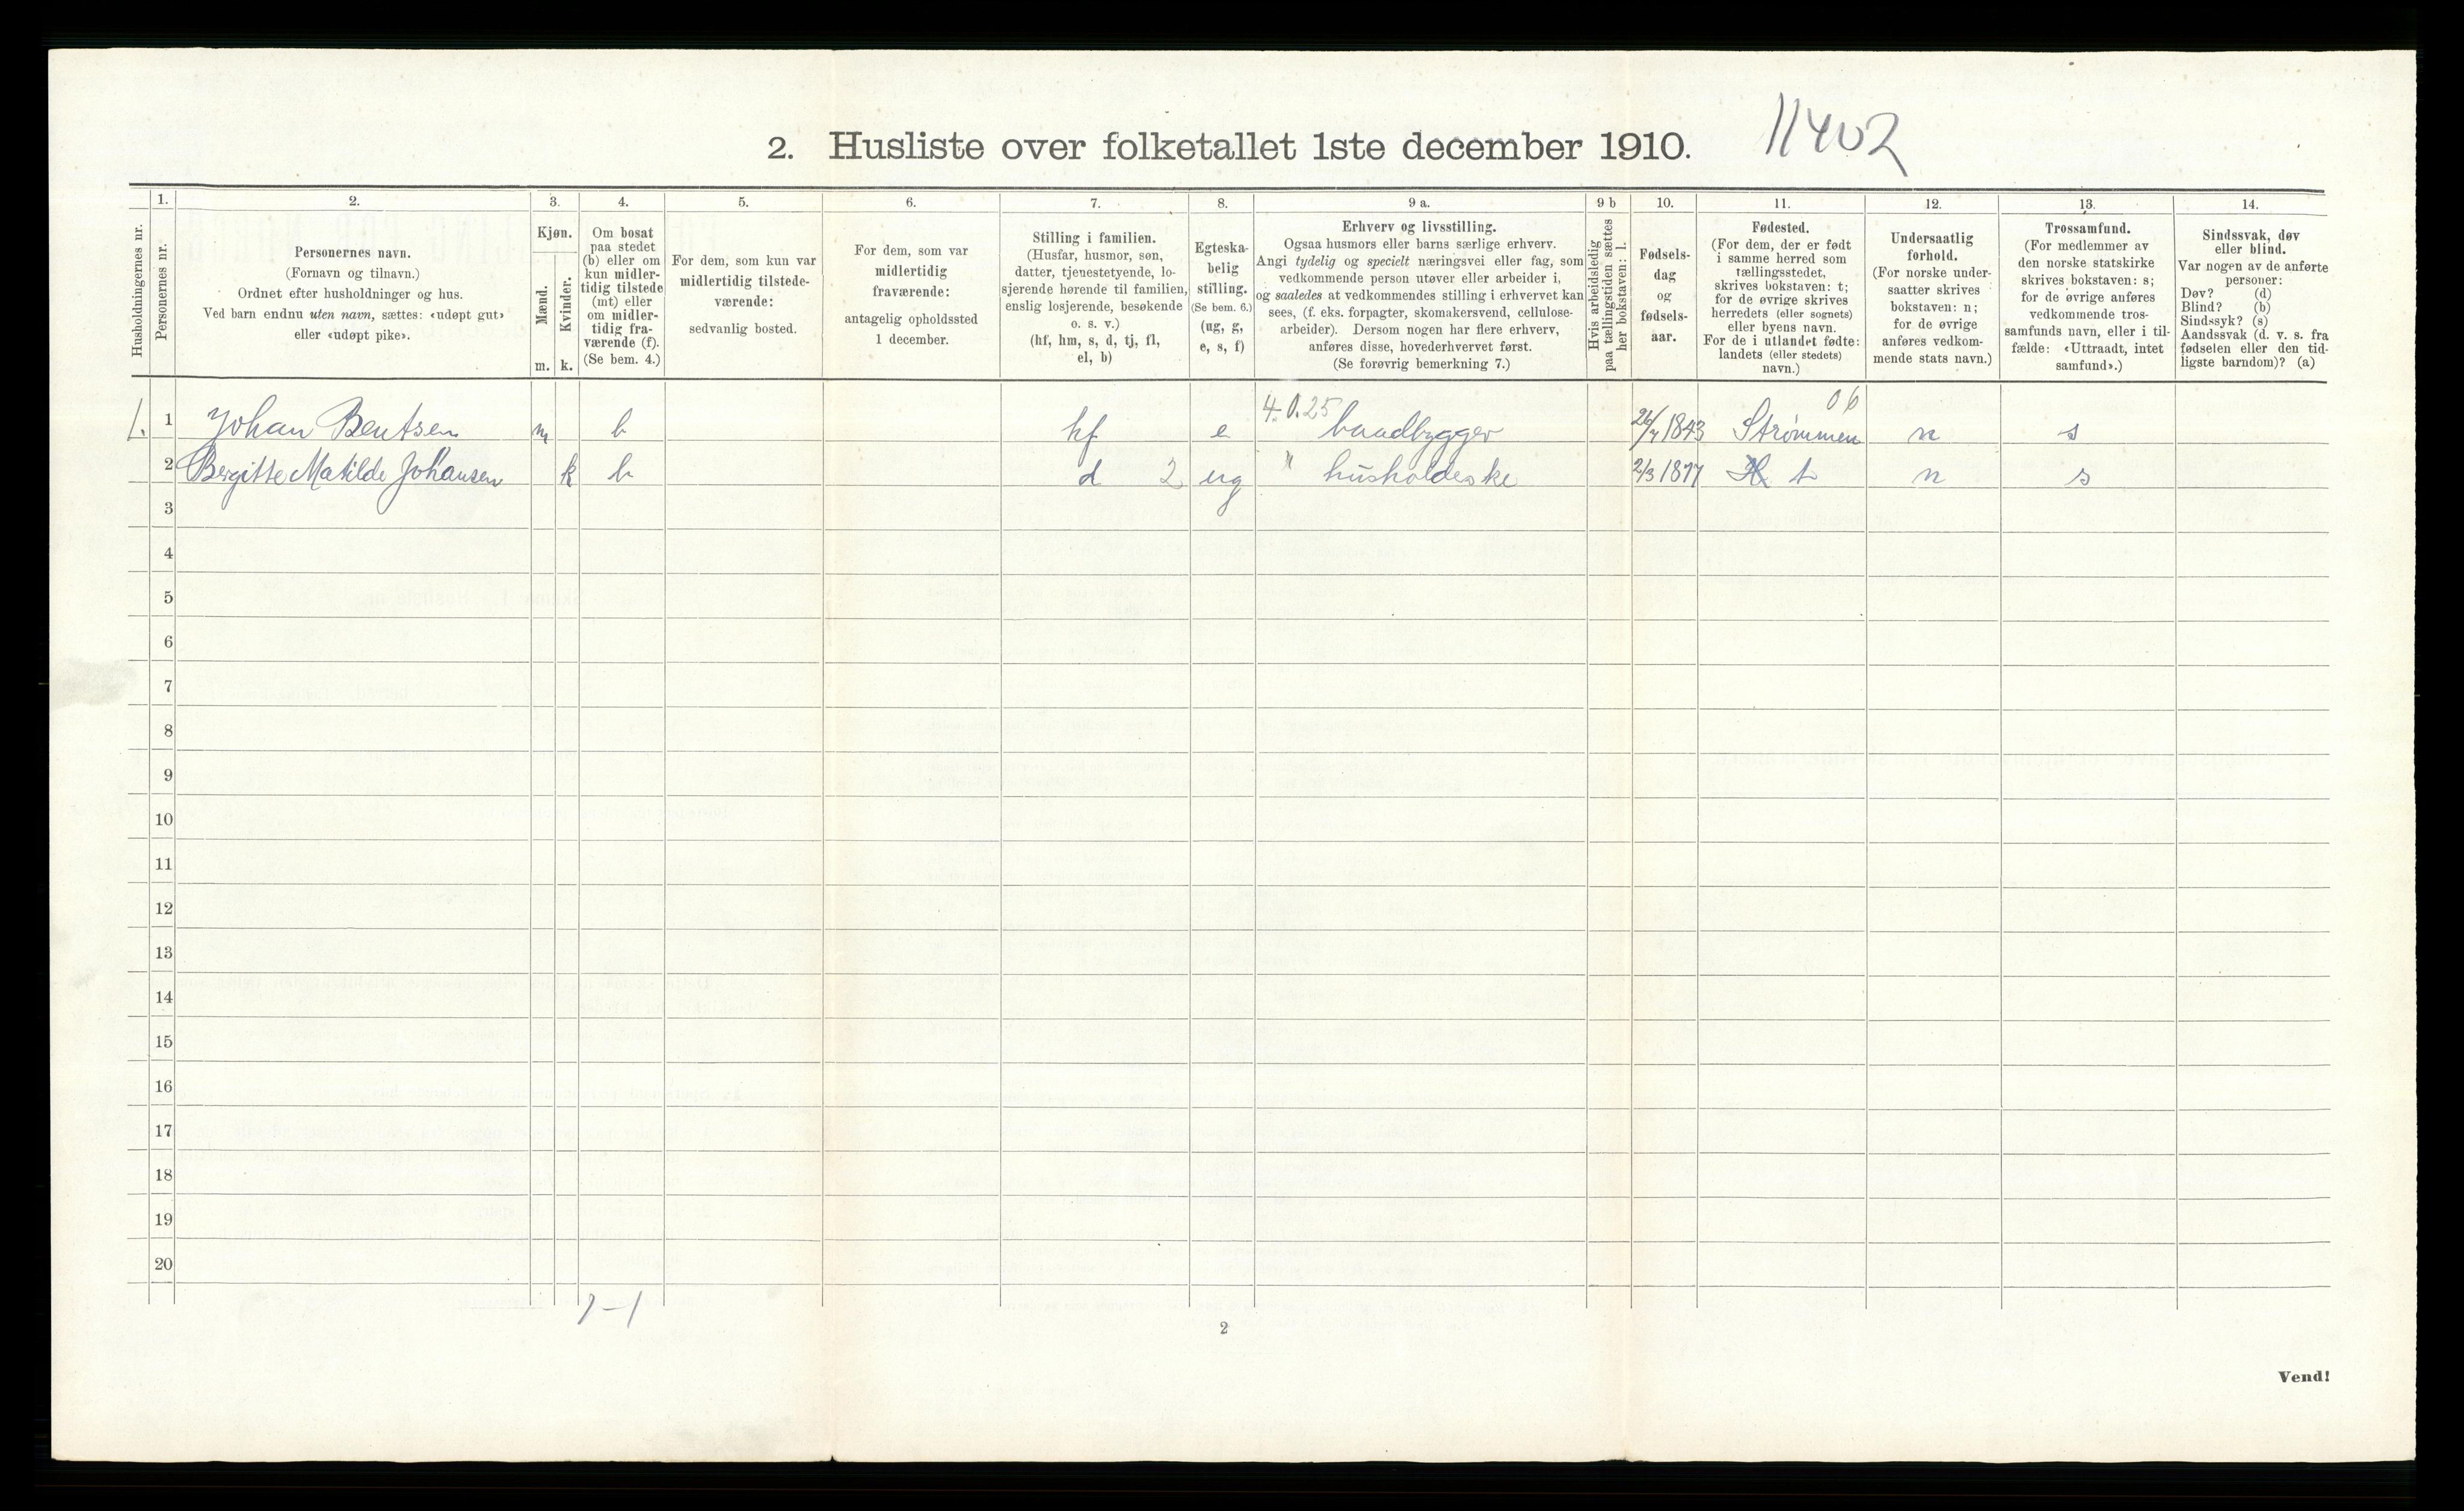 2. Husliste over folketallet 1ste december 1910. 11402
Husholdningernes nr.
1.
Personernes nr.
2.
Personernes navn.
(Fornavn og tilnavn.)
Ordnet efter husholdninger og hus.
Ved barn endnu uten navn, sættes: «udøpt gut»
eller «udøpt pike».
3.
Kjøn.
Mænd.
Kvinder.
m. k.
4.
Om bosat
paa stedet
(b) eller om
kun midler-
tidig tilstede
(mt) eller
om midler-
tidig fra-
værende (f).
(Se bem. 4.)
5.
For dem, som kun var
midlertidig tilstede-
værende:
sedvanlig bosted.
6.
For dem, som var
midlertidig
fraværende:
antagelig opholdssted
1 december.
7.
Stilling i familien.
(Husfar, husmor, søn,
datter, tjenestetyende, lo-
sjerende hørende til familien,
enslig losjerende, besøkende
o. s. v.)
(hf, hm, s, d, tj, fl,
el, b)
8.
Egteska-
belig
stilling.
(Se bem. 6.)
(ug, g,
e, s, f)
9 a.
Erhverv og livsstilling.
Ogsaa husmors eller barns særlige erhverv.
Angi tydelig og specielt næringsvei eller fag, som
vedkommende person utøver eller arbeider i,
og saaledes at vedkommendes stilling i erhvervet kan
sees, (f. eks. forpagter, skomakersvend, cellulose-
arbeider). Dersom nogen har flere erhverv,
anføres disse, hovederhvervet først.
(Se forøvrig bemerkning 7.)
9 b
Hvis arbeidsledig
paa tællingstiden sættes
her bokstaven: l.
10.
Fødsels-
dag
og
fødsels-
aar.
11.
Fødested.
(For dem, der er født
i samme herred som
tællingsstedet,
skrives bokstaven: t;
for de øvrige skrives
herredets (eller sognets)
eller byens navn.
For de i utlandet fødte:
landets (eller stedets)
navn.)
12.
Undersaatlig
forhold.
(For norske under-
saatter skrives
bokstaven: n;
for de øvrige
anføres vedkom-
mende stats navn.)
13.
Trossamfund.
(For medlemmer av
den norske statskirke
skrives bokstaven: s;
for de øvrige anføres
vedkommende tros-
samfunds navn, eller i til-
fælde: «Uttraadt, intet
samfund».)
14.
Sindssvak, døv
eller blind.
Var nogen av de anførte
personer:
Døv? (d)
Blind? (b)
Sindssyk? (s)
Aandssvak (d. v. s. fra
fødselen eller den tid-
ligste barndom)? (a)
4.0.25 06
1. 1 Johan Bentsen m b hf e baadbygger 1843 Strømmen n s
2 Bergitte Matilde Johansen k b d 2 ug " husholdeske 2/3 1877 t n s
3
4
5
6
7
8
9
10
11
12
13
14
15
16
17
18
19
20
1-1
2
Vend!